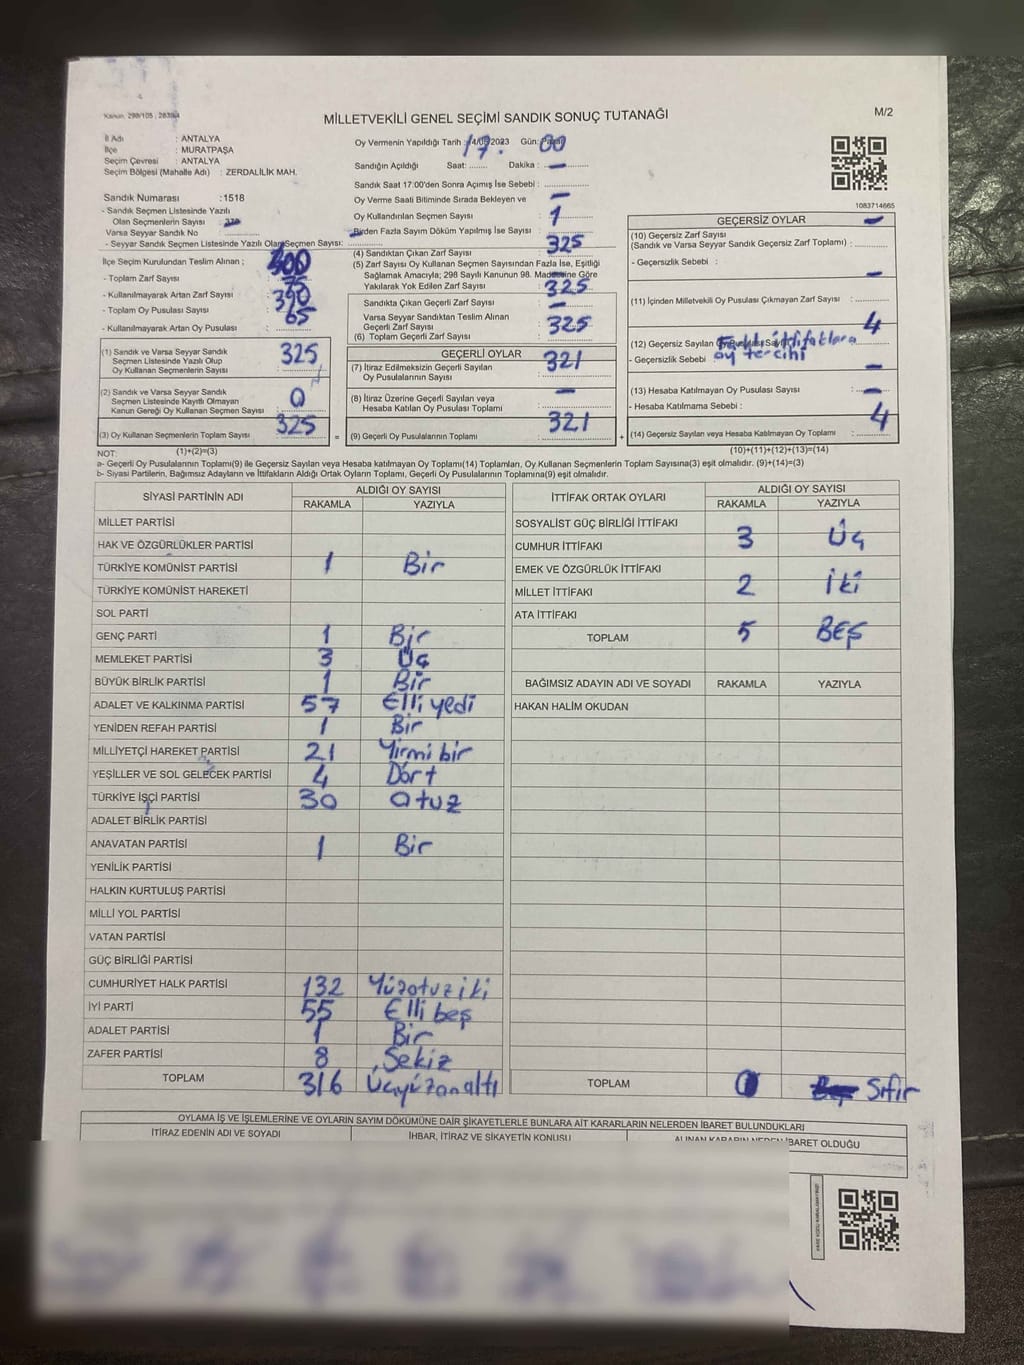 Kanun: 298/105 , 2839/4
MİLLETVEKİLİ GENEL SEÇİMİ SANDIK SONUÇ TUTANAĞI
M/2
İl Adı : ANTALYA
İlçe : MURATPAŞA
Seçim Çevresi : ANTALYA
Seçim Bölgesi (Mahalle Adı) : ZERDALİLİK MAH.
Sandık Numarası :1518
- Sandık Seçmen Listesinde Yazılı
Olan Seçmenlerin Sayısı :
Varsa Seyyar Sandık No :
- Seyyar Sandık Seçmen Listesinde Yazılı Olan Seçmen Sayısı:
İlçe Seçim Kurulundan Teslim Alınan ; 400
- Toplam Zarf Sayısı : 75
- Kullanılmayarak Artan Zarf Sayısı : 390
- Toplam Oy Pusulası Sayısı : 65
- Kullanılmayarak Artan Oy Pusulası :
(1) Sandık ve Varsa Seyyar Sandık
Seçmen Listesinde Yazılı Olup
Oy Kullanan Seçmenlerin Sayısı 325
(2) Sandık ve Varsa Seyyar Sandık
Seçmen Listesinde Kayıtlı Olmayan
Kanun Gereği Oy Kullanan Seçmen Sayısı 0
(3) Oy Kullanan Seçmenlerin Toplam Sayısı 325
Oy Vermenin Yapıldığı Tarih : 14/05/2023 Gün: Pazar
17. 00
Sandığın Açıldığı Saat: Dakika :
Sandık Saat 17:00'den Sonra Açımış İse Sebebi :
Oy Verme Saati Bitiminde Sırada Bekleyen ve
Oy Kullandırılan Seçmen Sayısı : 1
Birden Fazla Sayım Döküm Yapılmış İse Sayısı :
(4) Sandıktan Çıkan Zarf Sayısı : 325
(5) Zarf Sayısı Oy Kullanan Seçmen Sayısından Fazla İse, Eşitliği
Sağlamak Amacıyla; 298 Sayılı Kanunun 98. Maddesine Göre
Yakılarak Yok Edilen Zarf Sayısı :
Sandıkta Çıkan Geçerli Zarf Sayısı : 325
Varsa Seyyar Sandıktan Teslim Alınan
Geçerli Zarf Sayısı :
(6) Toplam Geçerli Zarf Sayısı : 325
GEÇERLİ OYLAR
(7) İtiraz Edilmeksizin Geçerli Sayılan
Oy Pusulalarının Sayısı 321
(8) İtiraz Üzerine Geçerli Sayılan veya
Hesaba Katılan Oy Pusulası Toplamı
(9) Geçerli Oy Pusulalarının Toplamı 321
1083714665
GEÇERSİZ OYLAR
(10) Geçersiz Zarf Sayısı
(Sandık ve Varsa Seyyar Sandık Geçersiz Zarf Toplamı) :
- Geçersizlik Sebebi :
(11) İçinden Milletvekili Oy Pusulası Çıkmayan Zarf Sayısı :
(12) Geçersiz Sayılan Oy Pusulası Sayısı 4
- Geçersizlik Sebebi Farklı ittifaklara
oy tercihi
(13) Hesaba Katılmayan Oy Pusulası Sayısı :
- Hesaba Katılmama Sebebi :
(14) Geçersiz Sayılan veya Hesaba Katılmayan Oy Toplamı 4
NOT: (1)+(2)=(3)
(10)+(11)+(12)+(13)=(14)
a- Geçerli Oy Pusulalarının Toplamı(9) ile Geçersiz Sayılan veya Hesaba katılmayan Oy Toplamı(14) Toplamları, Oy Kullanan Seçmenlerin Toplam Sayısına(3) eşit olmalıdır. (9)+(14)=(3)
b- Siyasi Partilerin, Bağımsız Adayların ve İttifakların Aldığı Ortak Oyların Toplamı, Geçerli Oy Pusulalarının Toplamına(9) eşit olmalıdır.
SİYASİ PARTİNİN ADI ALDIĞI OY SAYISI
RAKAMLA YAZIYLA
MİLLET PARTİSİ
HAK VE ÖZGÜRLÜKLER PARTİSİ
TÜRKİYE KOMÜNİST PARTİSİ 1 Bir
TÜRKİYE KOMÜNİST HAREKETİ
SOL PARTİ
GENÇ PARTİ 1 Bir
MEMLEKET PARTİSİ 3 Üç
BÜYÜK BİRLİK PARTİSİ 1 Bir
ADALET VE KALKINMA PARTİSİ 57 Elli yedi
YENİDEN REFAH PARTİSİ 1 Bir
MİLLİYETÇİ HAREKET PARTİSİ 21 Yirmi bir
YEŞİLLER VE SOL GELECEK PARTİSİ 4 Dört
TÜRKİYE İŞÇİ PARTİSİ 30 Otuz
ADALET BİRLİK PARTİSİ
ANAVATAN PARTİSİ 1 Bir
YENİLİK PARTİSİ
HALKIN KURTULUŞ PARTİSİ
MİLLİ YOL PARTİSİ
VATAN PARTİSİ
GÜÇ BİRLİĞİ PARTİSİ
CUMHURİYET HALK PARTİSİ 132 Yüzotuziki
İYİ PARTİ 55 Elli beş
ADALET PARTİSİ 1 Bir
ZAFER PARTİSİ 8 Sekiz
TOPLAM 316 Üçyüzonaltı
İTTİFAK ORTAK OYLARI ALDIĞI OY SAYISI
RAKAMLA YAZIYLA
SOSYALİST GÜÇ BİRLİĞİ İTTİFAKI
CUMHUR İTTİFAKI 3 Üç
EMEK VE ÖZGÜRLÜK İTTİFAKI
MİLLET İTTİFAKI 2 İki
ATA İTTİFAKI
TOPLAM 5 BEŞ
BAĞIMSIZ ADAYIN ADI VE SOYADI RAKAMLA YAZIYLA
HAKAN HALİM OKUDAN
TOPLAM 0 Sıfır
OYLAMA İŞ VE İŞLEMLERİNE VE OYLARIN SAYIM DÖKÜMÜNE DAİR ŞİKAYETLERLE BUNLARA AİT KARARLARIN NELERDEN İBARET BULUNDUKLARI
İTİRAZ EDENİN ADI VE SOYADI
İHBAR, İTİRAZ VE ŞİKAYETİN KONUSU
ALINAN KARARIN NEDEN İBARET OLDUĞU